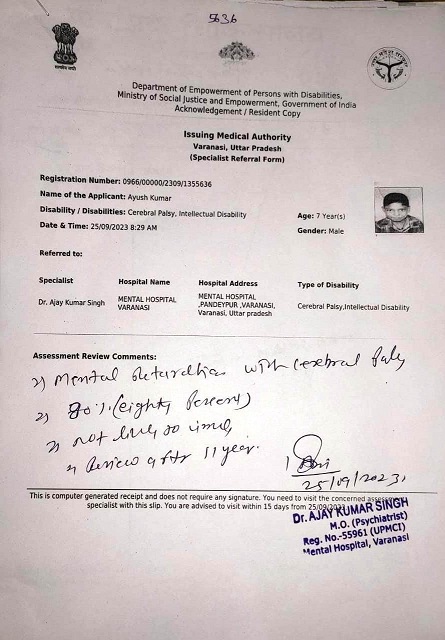 5636
Department of Empowerment of Persons with Disabilities,
Ministry of Social Justice and Empowerment, Government of India
Acknowledgement / Resident Copy
Issuing Medical Authority
Varanasi, Uttar Pradesh
(Specialist Referral Form)
Registration Number: 0966/00000/2309/1355636
Name of the Applicant: Ayush Kumar
Disability / Disabilities: Cerebral Palsy, Intellectual Disability Age: 7 Year(s)
Date & Time: 25/09/2023 8:29 AM Gender: Male
Referred to:
Specialist Hospital Name Hospital Address Type of Disability
Dr. Ajay Kumar Singh MENTAL HOSPITAL VARANASI MENTAL HOSPITAL ,PANDEYPUR ,VARANASI, Varanasi, Uttar pradesh Cerebral Palsy,Intellectual Disability
Assessment Review Comments:
Mental Retardation with cerebral Palsy
80%. (eighty Percent)
not
Review after 11 year.
25/09/2023,
This is computer generated receipt and does not require any signature. You need to visit the concerned assessment
specialist with this slip. You are advised to visit within 15 days from 25/09/2023
Dr. AJAY KUMAR SINGH
M.O. (Psychiatrist)
Reg. No.-55961 (UPMCI)
Mental Hospital, Varanasi